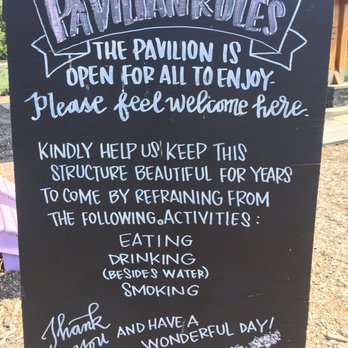 PAVILIAN RULES
THE PAVILION IS
OPEN FOR ALL TO ENJOY.
Please feel welcome here.
KINDLY HELP US KEEP THIS
STRUCTURE BEAUTIFUL FOR YEARS
TO COME BY REFRAINING FROM
THE FOLLOWING ACTIVITIES:
EATING
DRINKING
(BESIDES WATER)
SMOKING
Thank you AND HAVE A
WONDERFUL DAY!